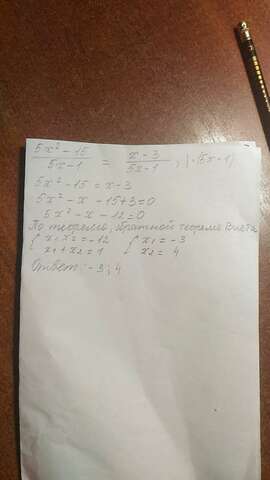 5x² - 15 / 5x - 1 = x - 3 / 5x - 1 , | · (5x - 1)
5x² - 15 = x - 3
5x² - x - 15 + 3 = 0
5x² - x - 12 = 0
По теореме, обратной теореме Виета
{ x₁x₂ = -12 { x₁ = -3
x₁ + x₂ = 1 x₂ = 4
Ответ: -3; 4